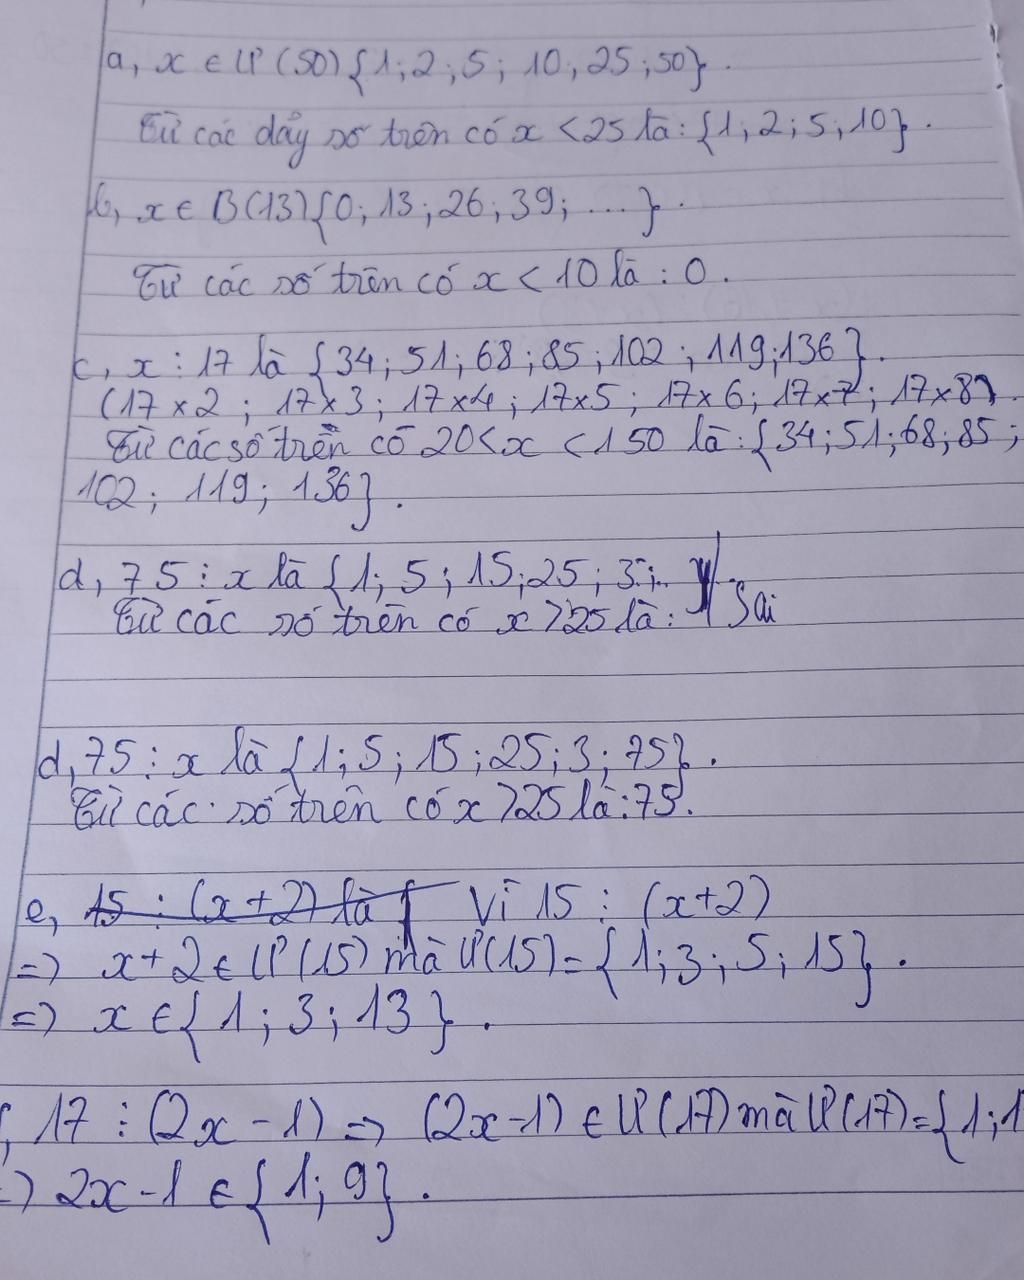 a, x ∈ Ư(50) {1; 2; 5; 10; 25; 50}.
Từ các dãy số trên có x < 25 là: {1; 2; 5; 10}.
b, x ∈ B(13) {0; 13; 26; 39; ...}.
Từ các số trên có x < 10 là: 0.
c, x ⋮ 17 là {34; 51; 68; 85; 102; 119; 136}.
(17 x 2; 17 x 3; 17 x 4; 17 x 5; 17 x 6; 17 x 7; 17 x 8).
Từ các số trên có 20 < x < 150 là: {34; 51; 68; 85;
102; 119; 136}.
d, 75 ⋮ x là {1; 5; 15; 25; 3;..
Từ các số trên có x > 25 là: Sai
d, 75 ⋮ x là {1; 5; 15; 25; 3; 75}.
Từ các số trên có x > 25 là: 75.
e, 15 ⋮ (x+2) là { Vì 15 ⋮ (x+2)
=> x+2 ∈ Ư(15) mà Ư(15) = {1; 3; 5; 15}.
=> x ∈ {1; 3; 13}.
, 17 ⋮ (2x - 1) => (2x-1) ∈ Ư(17) mà Ư(17) = {1; 1
=> 2x - 1 ∈ {1; 9}.